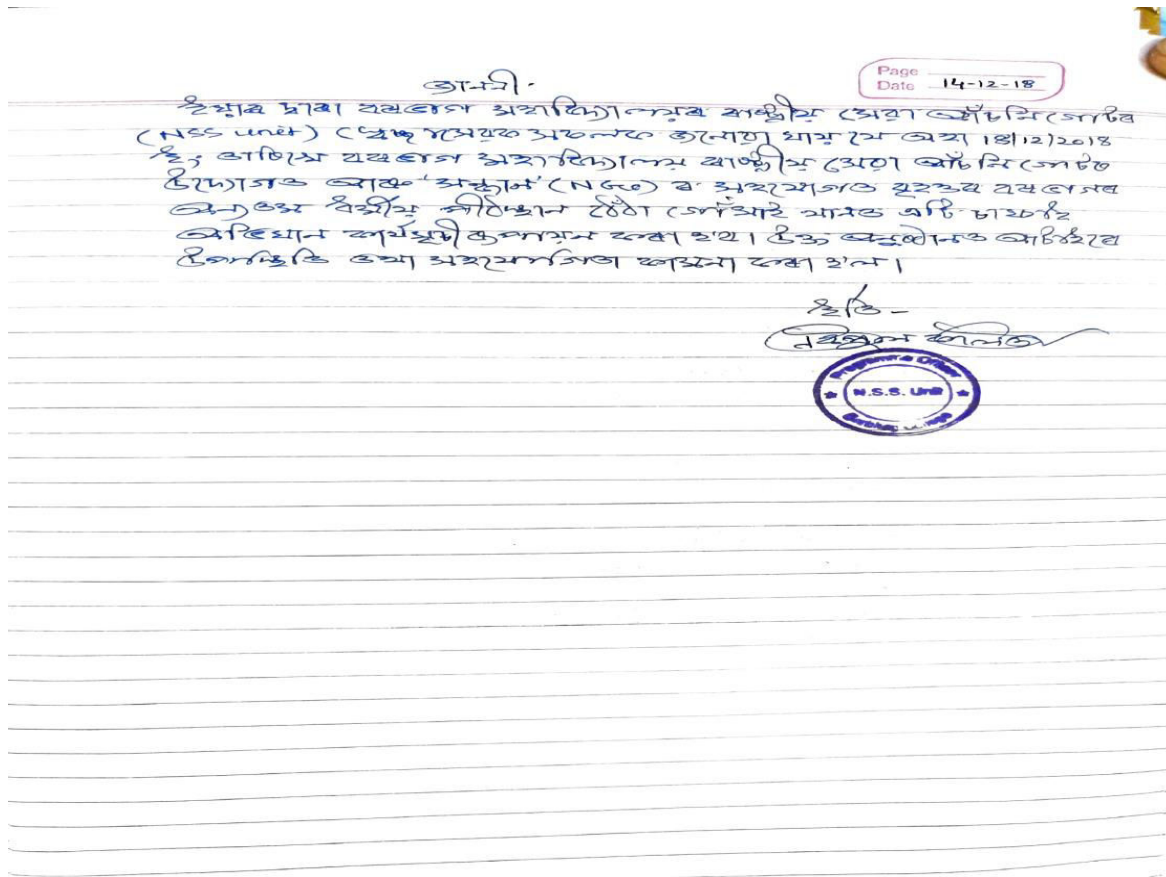 জাননী.
Page
Date 14-12-18
ইয়াৰ দ্বাৰা বৰভাগ মহাবিদ্যালয়ৰ ৰাষ্ট্ৰীয় সেৱা আঁচনি গোটৰ
(NSS unit) স্বেচ্ছাসেৱক সকলক জনোৱা যায় যে অহা 18/12/2018
ইং তাৰিখে বৰভাগ মহাবিদ্যালয় ৰাষ্ট্ৰীয় সেৱা আঁচনি গোটৰ
উদ্যোগত আৰু 'সন্ধান' (NGO) ৰ সহযোগত বৃহত্তৰ বৰভাগৰ
অন্যতম ধৰ্মীয় পীঠস্থান গোঁসাই থানত এটি চাফাই
অভিযান কাৰ্যসূচী ৰূপায়ন কৰা হব। উক্ত অনুষ্ঠানত আটাইৰে
উপস্থিতি তথা সহযোগিতা কামনা কৰা হ'ল।
ইতি-
নিৰঞ্জন কলিতা
Programme Officer
N.S.S. Unit